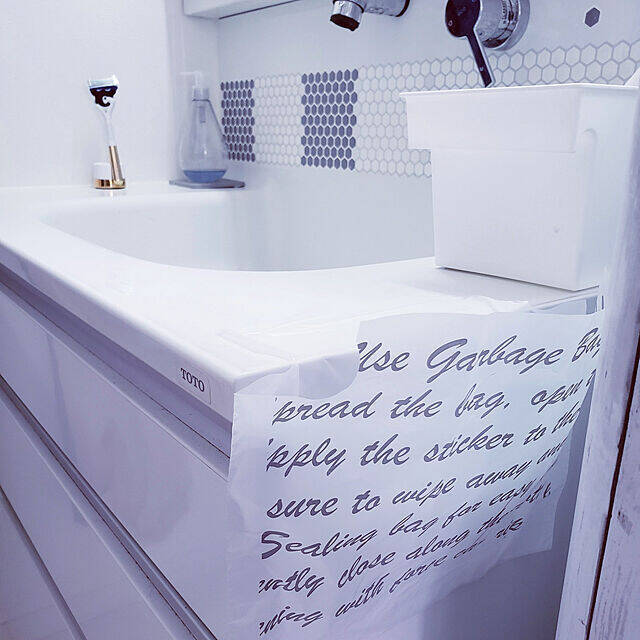 TOTO
Use Garbage Bag
pread the bag, open
pply the sticker to the
sure to wipe away any
Sealing bag for easy
ently close along the
ening with force